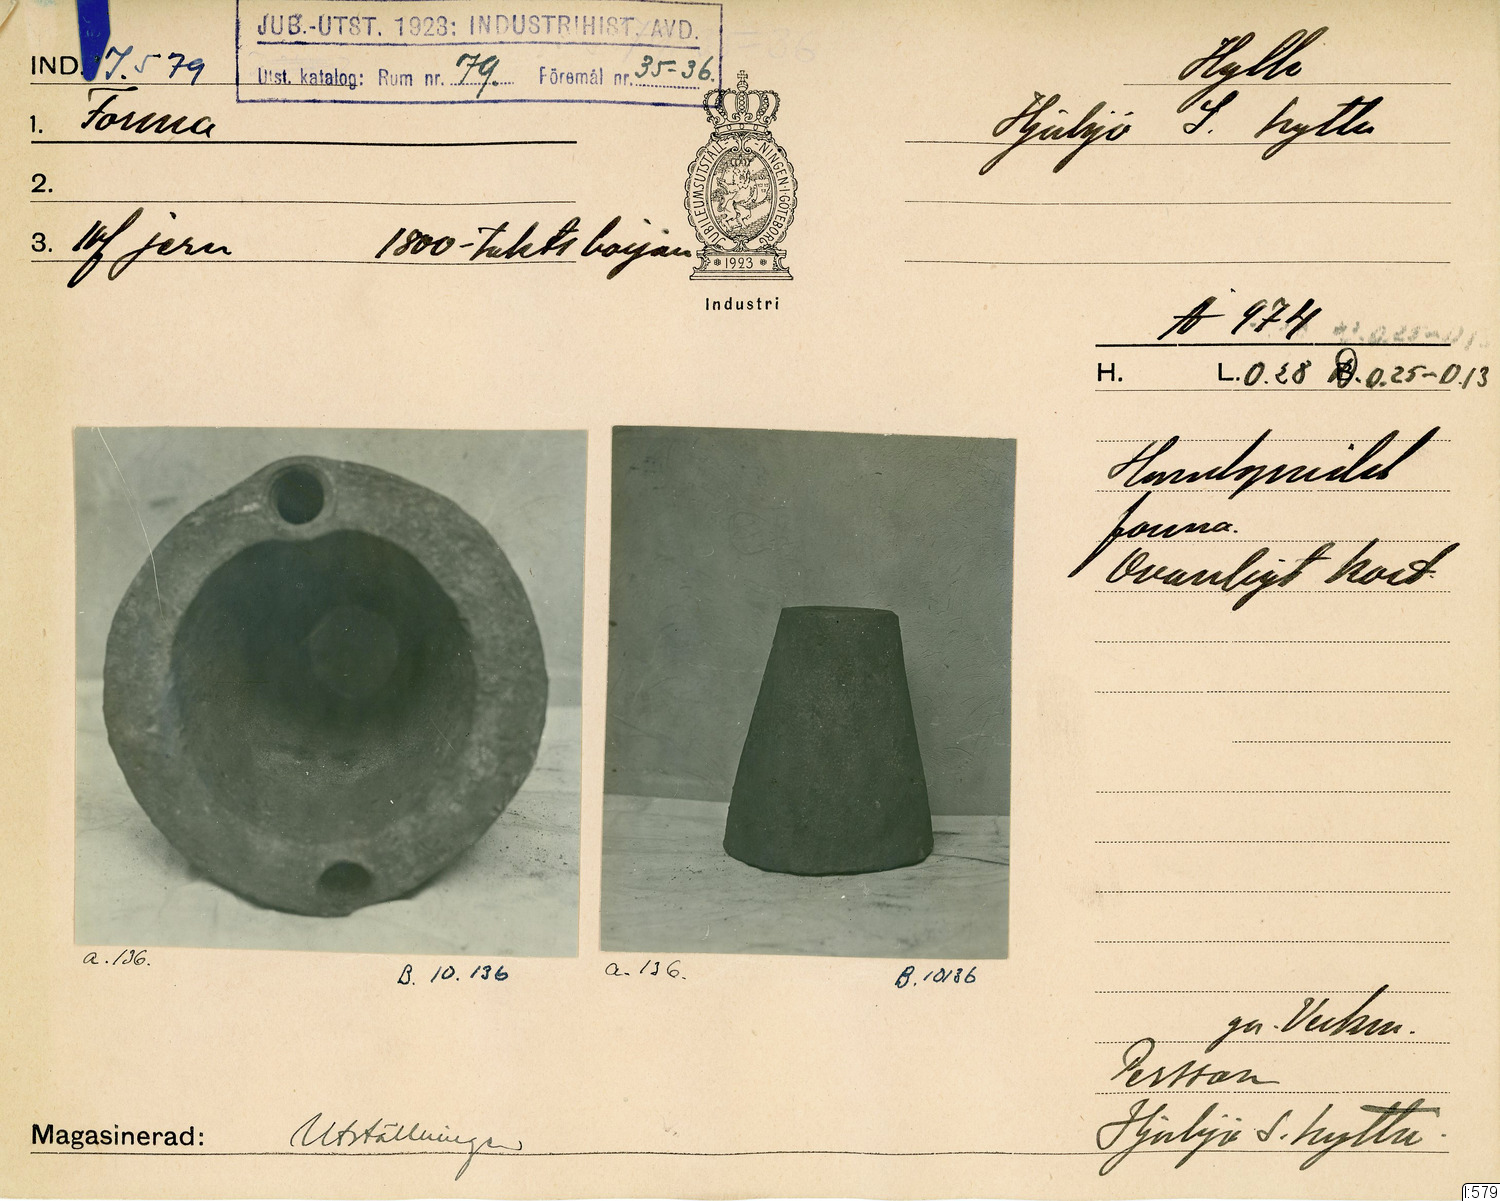 JUB.-UTST. 1923: INDUSTRIHIST. AVD.
Utst. katalog: Rum nr. 79. Föremål nr. 35-36.
IND. I. 579
Hylte
1. Forma
S. hytta
2.
3. Af jern 1800-talets början
JUBILEUMSUTSTÄLL-NINGEN·I·GÖTEBORG
1923
Industri
A 974
H. L. 0.28 D. 0.25-0.13
forma.
Ovanligt kort
a. 136. B. 10. 136 a. 136. B. 10136
Persson
S. hytta.
Magasinerad: Utställningen
I:579